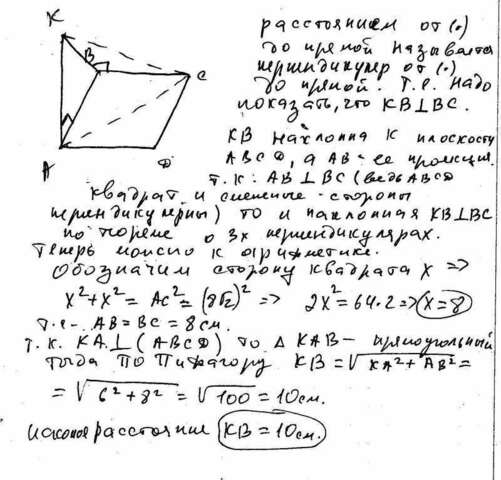 K
B
C
A
D
расстоянием от (·)
до прямой называется
перпендикуляр от (·)
до прямой. Т.е. надо
показать, что KB⊥BC.
KB наклонна к плоскости
ABCD, а AB - её проекция.
т.к. AB⊥BC (ведь ABCD
квадрат и смежные стороны
перпендикулярны) то и наклонная KB⊥BC
по теореме о 3х перпендикулярах.
Теперь можно к арифметике.
Обозначим сторону квадрата x =>
x²+x² = AC² = (8√2)² => 2x² = 64·2 => x=8
т.е. AB=BC=8см.
т.к. KA⊥(ABCD) то △KAB - прямоугольный
тогда по Пифагору KB = √KA²+AB² =
= √6²+8² = √100 = 10см.
искомое расстояние KB = 10см.